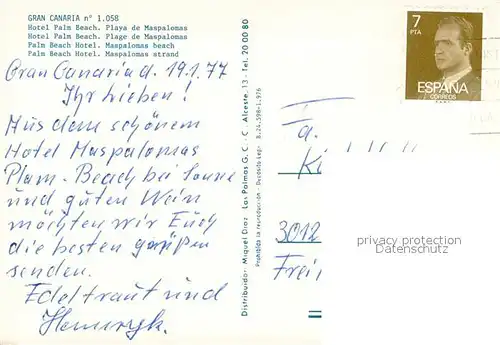 GRAN CANARIA nº 1.058
Hotel Palm Beach. Playa de Maspalomas
Hotel Palm Beach. Plage de Maspalomas
Palm Beach Hotel. Maspalomas beach
Palm Beach Hotel. Maspalomas strand
Gran Canaria d. 19.1.77
Ihr Lieben!
Aus dem schönem
Hotel Maspalomas
Plam-Beach bei Sonne
und guten Wein
möchten wir Euch
die besten grüßen
senden.
Edeltraut und
Distribuidor: Miguel Díaz Las Palmas G. C. - C. Alceste, 13 - Tel. 20 00 80
Prohibida la reproducción - Depósito Lep. B. 24.598-1.976
7
PTA
ESPAÑA
CORREOS
3012
privacy protection
Datenschutz